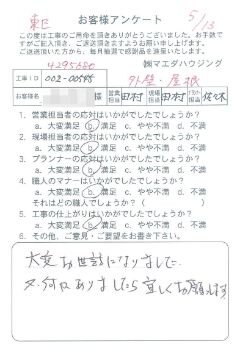 東区
5/13
お客様アンケート
この度は工事のご用命を頂きありがとうございました。お手数で
すがご記入頂き、ご返送頂きますようお願い申し上げます。
ご返送頂いた方から、毎月抽選で感謝品を進呈いたします。
4295680
㈱マエダハウジング
工事ID 002-00585 外壁・屋根
お客様名 様 営業担当 田村 現場担当 田村 プランナー担当 佐々木
1. 営業担当者の応対はいかがでしたでしょうか?
a. 大変満足 b. 満足 c. やや不満 d. 不満
2. 現場担当者の応対はいかがでしたでしょうか?
a. 大変満足 b. 満足 c. やや不満 d. 不満
3. プランナーの応対はいかがでしたでしょうか?
a. 大変満足 b. 満足 c. やや不満 d. 不満
4. 職人のマナーはいかがでしたでしょうか?
a. 大変満足 b. 満足 c. やや不満 d. 不満
それはどの職人でしょうか?( )
5. 工事の仕上がりはいかがでしたでしょうか?
a. 大変満足 b. 満足 c. やや不満 d. 不満
6. その他、ご意見・ご要望をお書き下さい。
大変お世話になりました。
又、何かありましたら宜しくお願いします